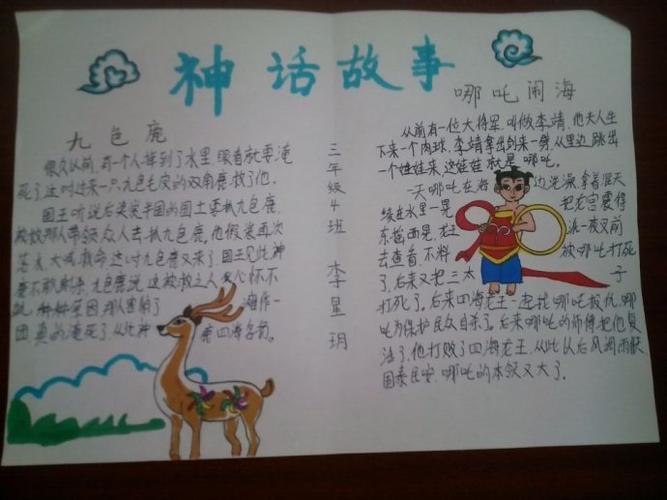 神话故事
九色鹿
很久以前,有一个人掉到了水里,眼看就要淹
死了,这时过来一只九色毛皮的双角鹿救了他。
国王听说后奖赏半国的国土要抓九色鹿。
被救那人带领众人去抓九色鹿。他假装再次
落水,大喊救命,这时九色鹿又来了,国王见此神
鹿不
九色鹿说,这被救之人
心怀不
真的淹死了,从此神
三年级4班 李星玥
哪吒闹海
从前有一位大将军,叫做李靖,他夫人生
下来一个肉球,李靖拿出剑来一劈,从里边跳出
一个娃娃来,这娃娃就是哪吒。
一天哪吒在海边洗澡,拿着混天
绫在水里一晃,把龙宫震得
东摇西晃,龙王派一夜叉前
去查看,不料被哪吒打死
了,后来又把三太子
打死了。后来四海龙王一起找哪吒报仇,哪
吒为保护民众自杀了。后来哪吒的师傅把他复
活了,他打败了四海龙王,从此以后风调雨顺,
国泰民安,哪吒的本领又大了。